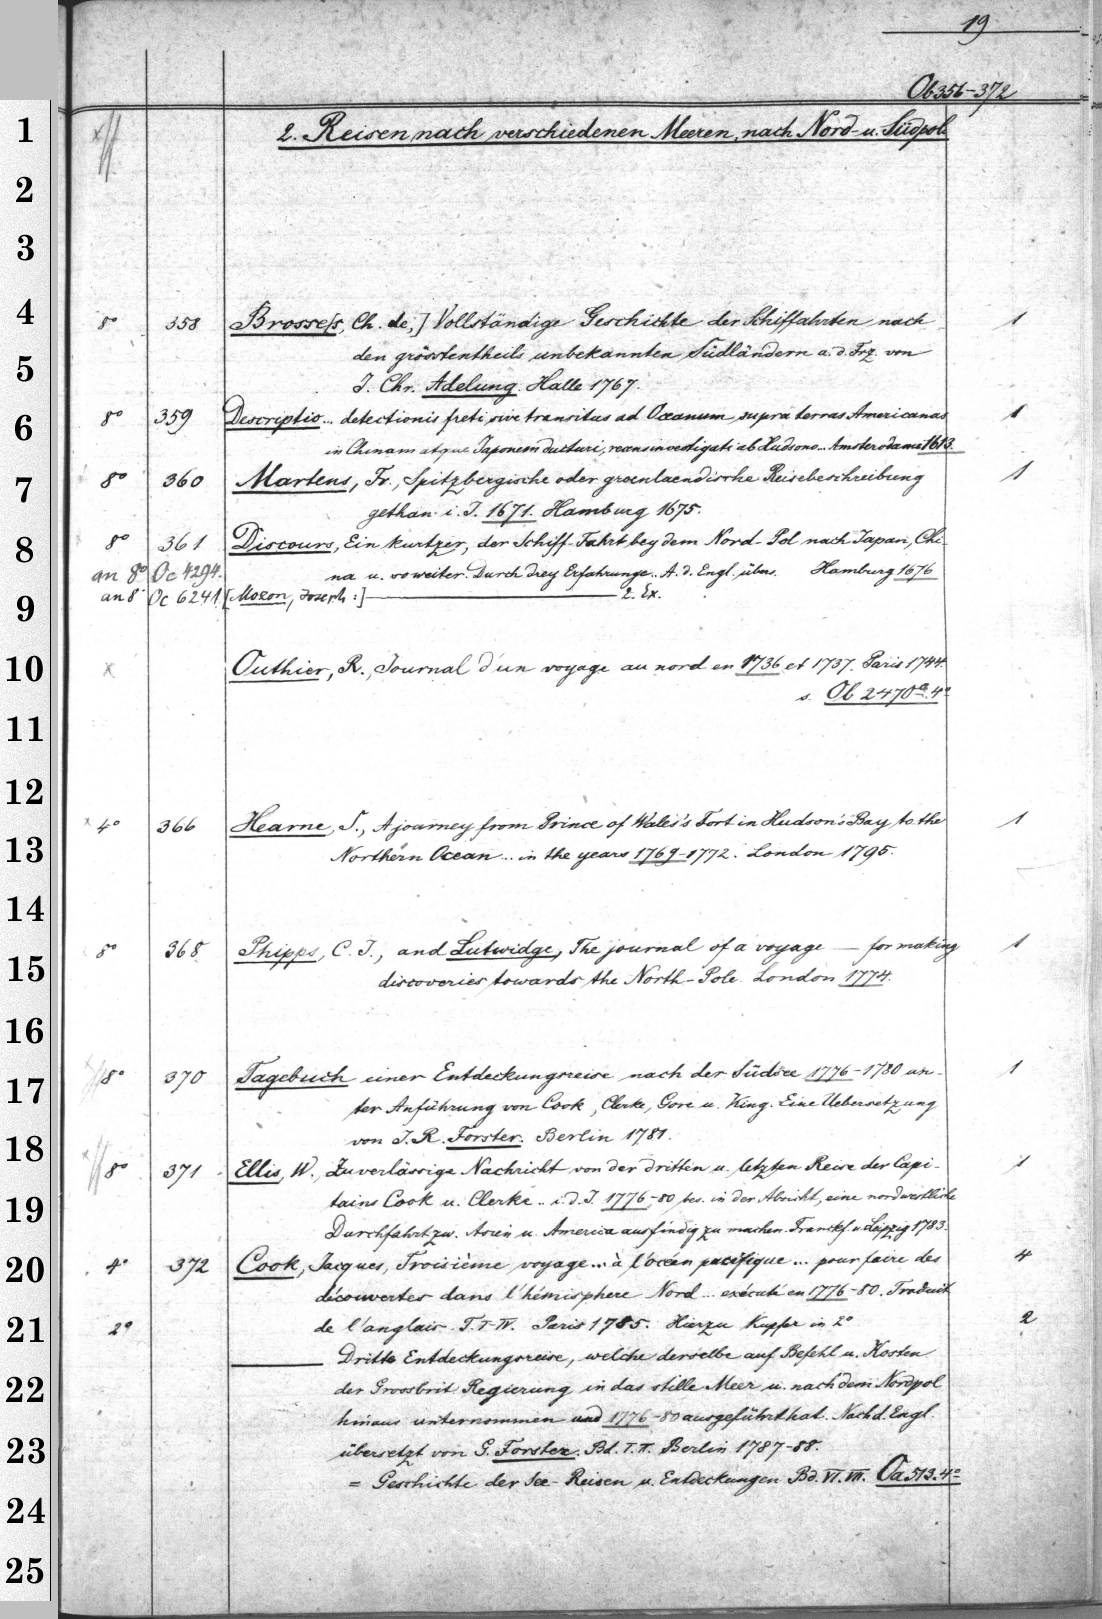 19
Ob 356-372
1
2. Reisen nach verschiedenen Meeren, nach Nord- u. Südpol
2
3
4
8° 358 Brosse[s, Ch. de,] Vollständige Geschichte der Schiffahrten nach 1
den grösstentheils unbekannten Südländern a. d. Frz. von
5
J. Chr. Adelung. Halle 1767.
6
8° 359 Descriptio... detectionis freti, sive transitus ad Oceanum supra terras Americanas 1
in Chinam atque Japonem ducturi, recens investigati ab Hudsono... Amsterodami 1613.
7
8° 360 Martens, Fr., Spitzbergische oder groenlaendische Reisebeschreibung 1
gethan i. J. 1671. Hamburg 1675.
8
8° 361 Discours, Ein kurtzer, der Schiff-Fahrt bey dem Nord-Pol nach Japan, Chi-
an 8° Oc 4294. na u. so weiter. Durch drey Erfahrunge.. A. d. Engl. übers. Hamburg 1676
9
an 8° Oc 6241 [Moxon, Joseph:] 2. Ex.
10
x Outhier, R., Journal d'un voyage au nord en 1736 et 1737. Paris 1744.
s. Ob 2470a. 4°
11
12
x 4° 366 Hearne, S., A journey from Prince of Wales's Fort in Hudson's Bay to the 1
13
Northern Ocean... in the years 1769-1772. London 1795.
14
8° 368 Phipps, C. J., and Lutwidge, The journal of a voyage — for making 1
15
discoveries towards the North-Pole. London 1774.
16
17
8° 370 Tagebuch einer Entdeckungsreise nach der Südsee 1776-1780 un- 1
ter Anführung von Cook, Clerke, Gore u. King. Eine Uebersetzung
18
von J. R. Forster. Berlin 1781.
8° 371 Ellis, W., Zuverlässige Nachricht von der dritten u. letzten Reise der Capi- 1
19
tains Cook u. Clerke .. i. d. J. 1776-80 bes. in der Absicht, eine nordwestliche
Durchfahrt zw. Asien u. America ausfindig zu machen. Franckf. u. Leipzig 1783.
20
4° 372 Cook, Jacques, Troisième voyage... à l'océan pacifique... pour faire des 4
découvertes dans l'hémisphere Nord... exécuté en 1776-80. Traduit
21
2° de l'anglais. T. I-IV. Paris 1785. Hierzu Kupfer in 2° 2
Dritte Entdeckungsreise, welche derselbe auf Befehl u. Kosten
22
der Grossbrit Regierung in das stille Meer u. nach dem Nordpol
hinaus unternommen und 1776-80 ausgeführt hat. Nach d. Engl.
23
übersetzt von G. Forster. Bd. I. II. Berlin 1787-88.
= Geschichte der See-Reisen u. Entdeckungen Bd. VI. VII. Oa 513. 4°
24
25